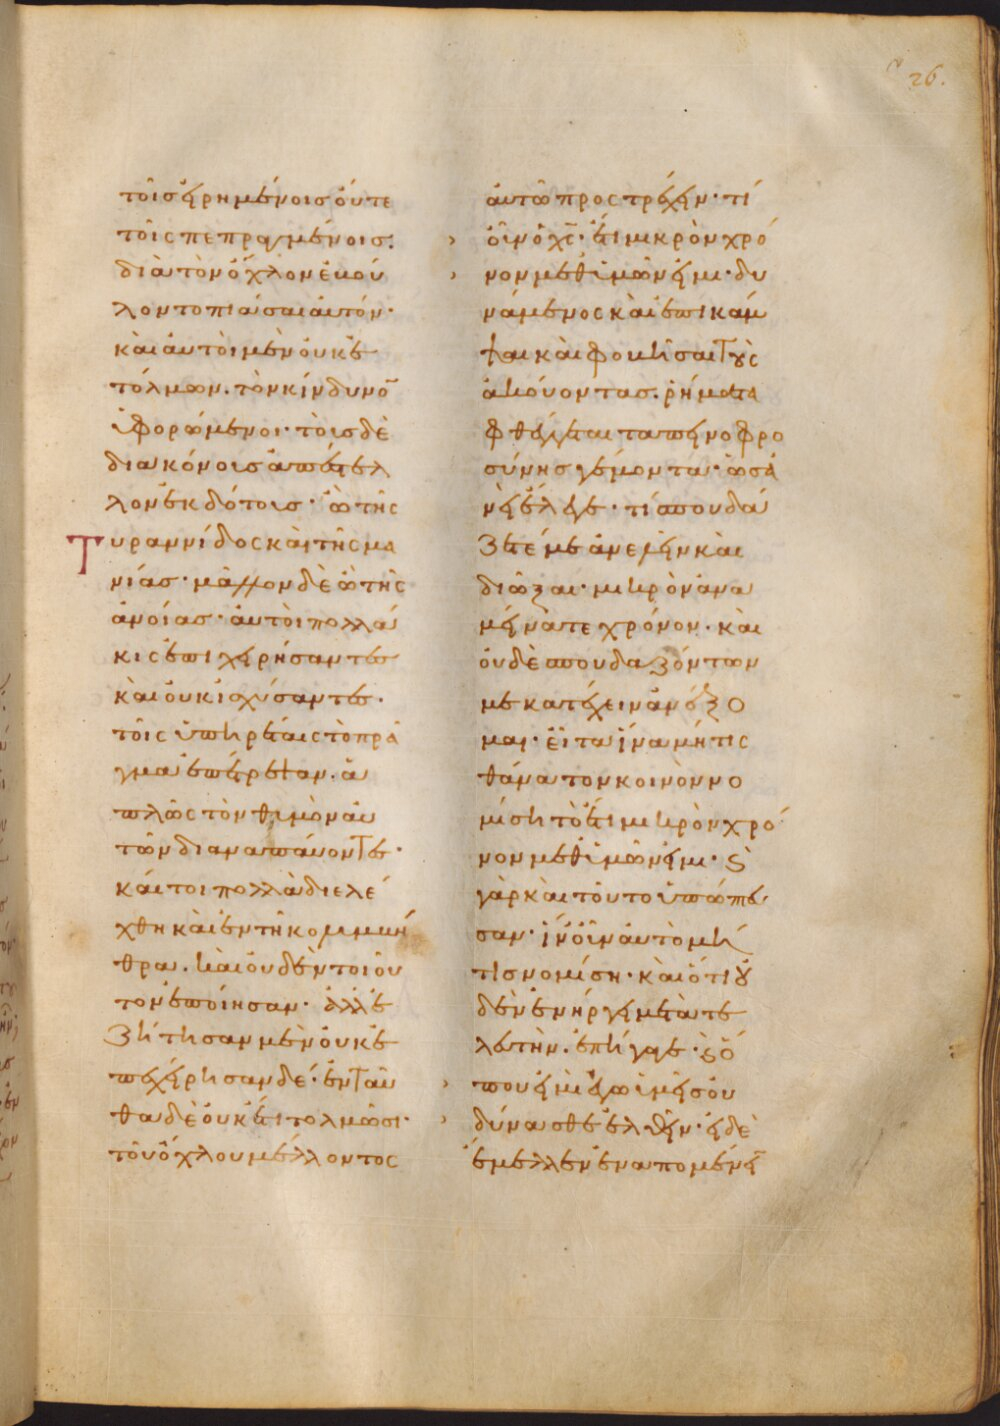 26.
τοῖς εἰρημένοις οὔτε
τοῖς πεπραγμένοις.
διὰ τὸν ὄχλον ἐβού
λοντο πιάσαι αὐτόν·
καὶ αὐτοὶ μὲν οὐκ ἐ
τόλμων. τὸν κίνδυνο̅
ὑφορώμενοι· τοῖς δὲ
διακόνοις ἀπέστελ
λον ἐκδότοις· ὢ τῆς
Τυραννίδος καὶ τῆς μα
νίας· μᾶλλον δὲ ὢ τῆς
ἀνοίας· αὐτοὶ πολλά
κις ἐπιχειρήσαντες
καὶ οὐκ ἰσχύσαντες·
τοῖς ὑπηρέταις τὸ πρᾶ
γμα ἐπέτρεψαν. ἁ
πλῶς τὸν θυμὸν αὐ
τῶν διαναπαύοντες·
καίτοι πολλὰ διελέ
χθη καὶ ἐν τῇ κολυμβή
θρα. καὶ οὐδὲν τοιοῦ
τον ἐποίησαν· ἀλλ' ἐ
ζήτησαν μὲν οὐκ ἐ
πεχείρησαν δέ· ἐνταῦ
θα δὲ οὐκέτι τολμῶσι·
τοῦ ὄχλου μέλλοντος
αὐτῶ προστρέχειν· τί
οὖν ὁ χ̅ς̅· ἔτι μικρὸν χρό
νον μεθ' ὑμῶν εἰμι· δυ
νάμενος καὶ ἐπικάμ
ψαι καὶ φοβῆσαι τοὺς
ἀκούοντας. ῥήματα
φθέγγεται ταπεινοφρο
σύνης γέμοντα· ὡσα
νεὶ ἔλεγε· τί σπουδά
ζετέ με ἀνελεῖν καὶ
διῶξαι· μικρὸν ἀνα
μείνατε χρόνον. καὶ
οὐδὲ σπουδαζόντων
με κατέχειν ἀνέξο
μαι· εἶτα ἵνα μή τις
θάνατον κοινὸν νο
μίση τὸ ἔτι μικρὸν χρό
νον μεθ' ὑμῶν εἰμι· καὶ
γὰρ καὶ τοῦτο ὑπώπτευ
σαν· ἵν' οὖν αὐτὸ μή
τις νομίση· καὶ ὅτι οὐ
δὲν ἐνήργει μετὰ τε
λευτὴν. ἐπήγαγε· καὶ ὅ
που εἰμὶ ἐγὼ ὑμεῖς οὐ
δύνασθε ἐλθεῖν· εἰ δὲ
ἔμελλεν ἐναπομένει̅